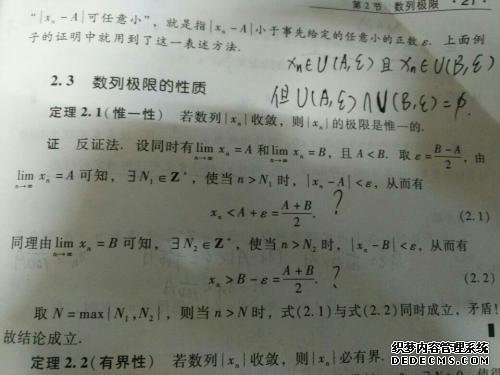 第2节 数列极限 ·21·
“|xₙ-A|可任意小”，就是指|xₙ-A|小于事先给定的任意小的正数ε. 上面例
子的证明中就用到了这一表述方法.
xₙ∈U(A,ε) 且 xₙ∈U(B,ε)
但 U(A,ε)∩U(B,ε)=φ.
2.3 数列极限的性质
定理2.1(惟一性) 若数列{xₙ}收敛，则{xₙ}的极限是惟一的.
证 反证法. 设同时有lim xₙ=A和lim xₙ=B，且A<B. 取ε=(B-A)/2，由
n→∞ n→∞
lim xₙ=A可知，∃N₁∈Z⁺，使当n>N₁时，|xₙ-A|<ε，从而有
n→∞
xₙ<A+ε=(A+B)/2. ? (2.1)
同理由lim xₙ=B可知，∃N₂∈Z⁺，使当n>N₂时，|xₙ-B|<ε，从而有
n→∞
xₙ>B-ε=(A+B)/2. ? (2.2)
取N=max{N₁,N₂}，则当n>N时，式(2.1)与式(2.2)同时成立，矛盾!
故结论成立.
定理2.2(有界性) 若数列{xₙ}收敛，则{xₙ}必有界.
织梦内容管理系统
DEDECMS.COM